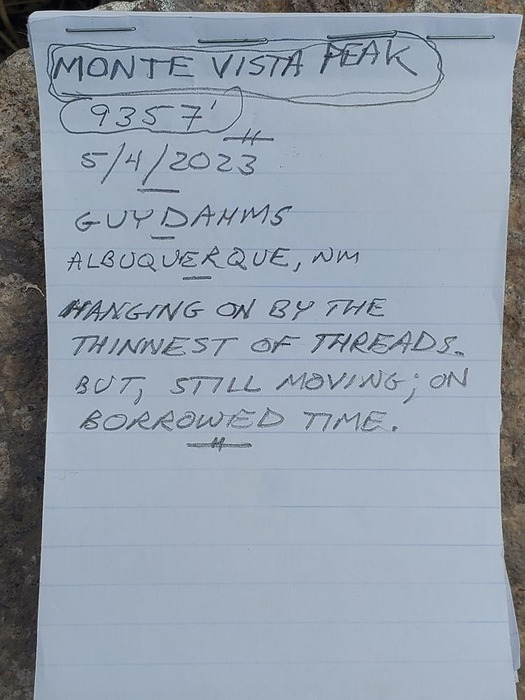 MONTE VISTA PEAK
9357'
5/4/2023
GUY DAHMS
ALBUQUERQUE, NM
HANGING ON BY THE
THINNEST OF THREADS.
BUT, STILL MOVING; ON
BORROWED TIME.